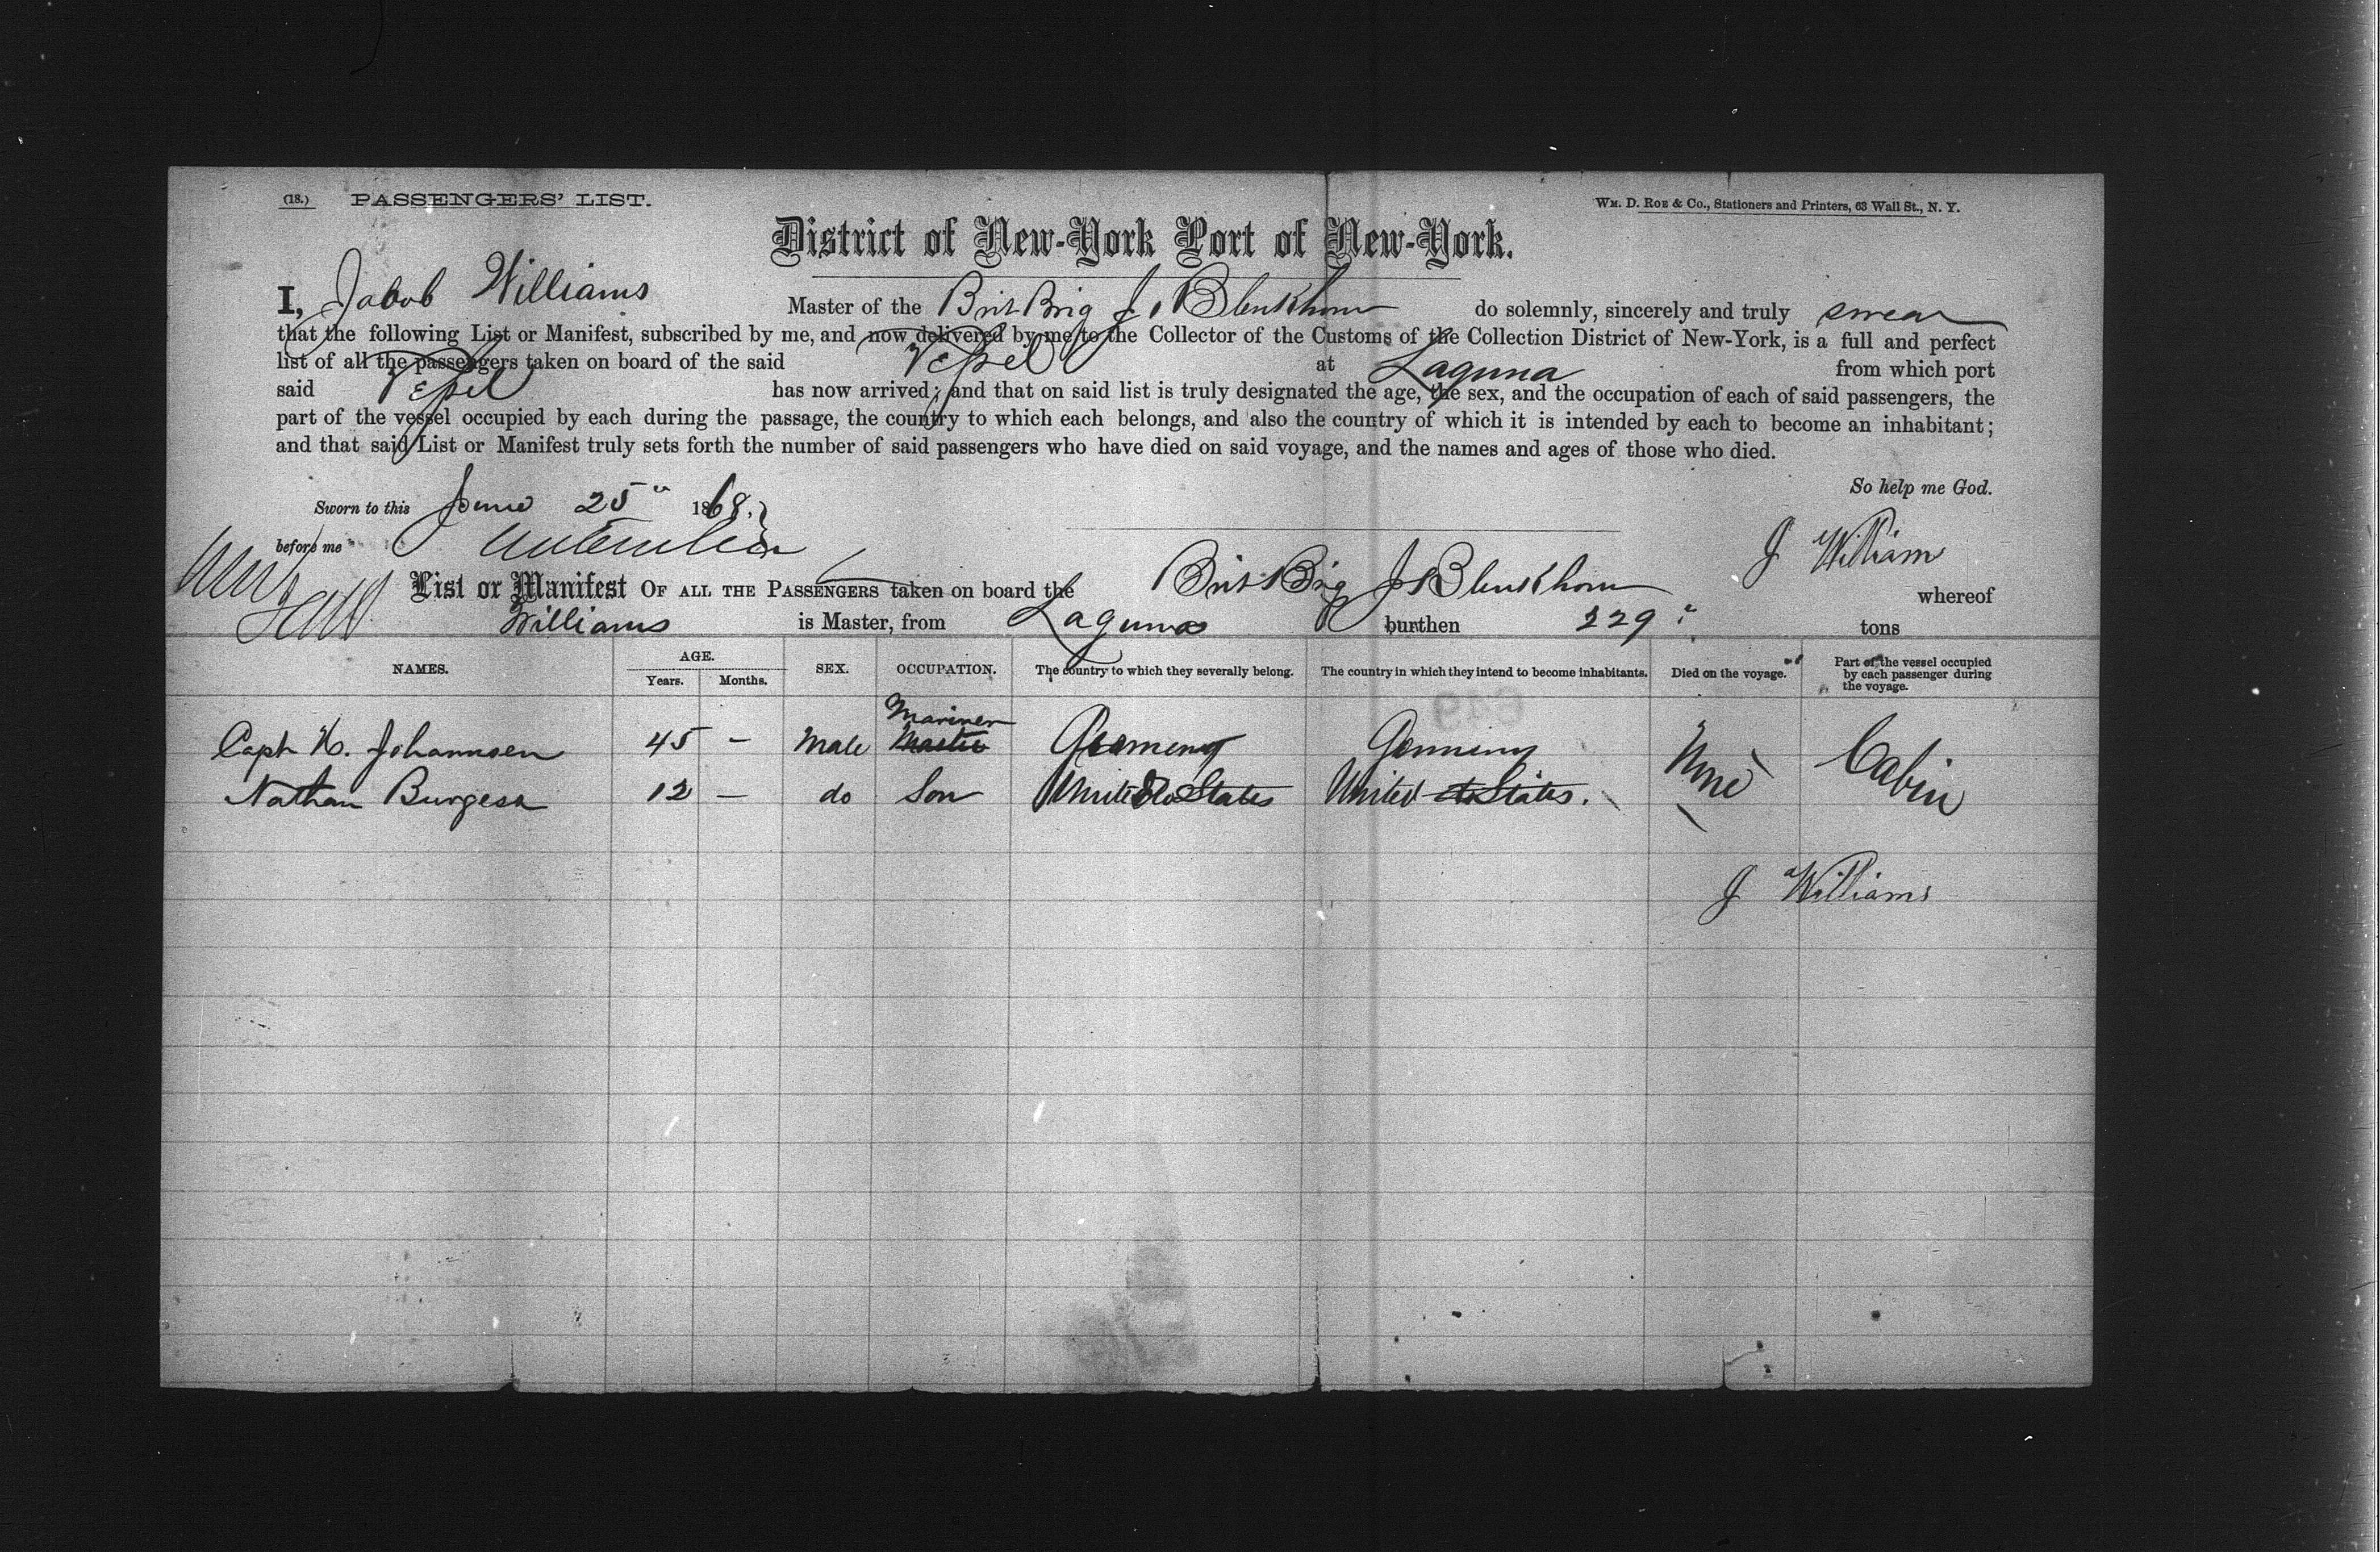 (18.) PASSENGERS' LIST.
WM. D. ROE & Co., Stationers and Printers, 63 Wall St., N. Y.
District of New-York Port of New-York.
I, Jabob Williams Master of the Brit Brig J. Blenkhorn do solemnly, sincerely and truly swear
that the following List or Manifest, subscribed by me, and now delivered by me to the Collector of the Customs of the Collection District of New-York, is a full and perfect
list of all the passengers taken on board of the said Vessel at Laguna from which port
said Vessel has now arrived; and that on said list is truly designated the age, the sex, and the occupation of each of said passengers, the
part of the vessel occupied by each during the passage, the country to which each belongs, and also the country of which it is intended by each to become an inhabitant;
and that said List or Manifest truly sets forth the number of said passengers who have died on said voyage, and the names and ages of those who died.
So help me God.
Sworn to this June 25" 1868.
before me
J William
List or Manifest OF ALL THE PASSENGERS taken on board the Brit Brig J Blenkhorn whereof
Williams is Master, from Laguna burthen 229 tons
NAMES. AGE. Years. Months. SEX. OCCUPATION. The country to which they severally belong. The country in which they intend to become inhabitants. Died on the voyage. Part of the vessel occupied by each passenger during the voyage.
Mariner
Capt H. Johannsen 45 – Male Master Germeny Germeny None Cabin
Nathan Burgess 12 – do Son United States United States.
J Williams